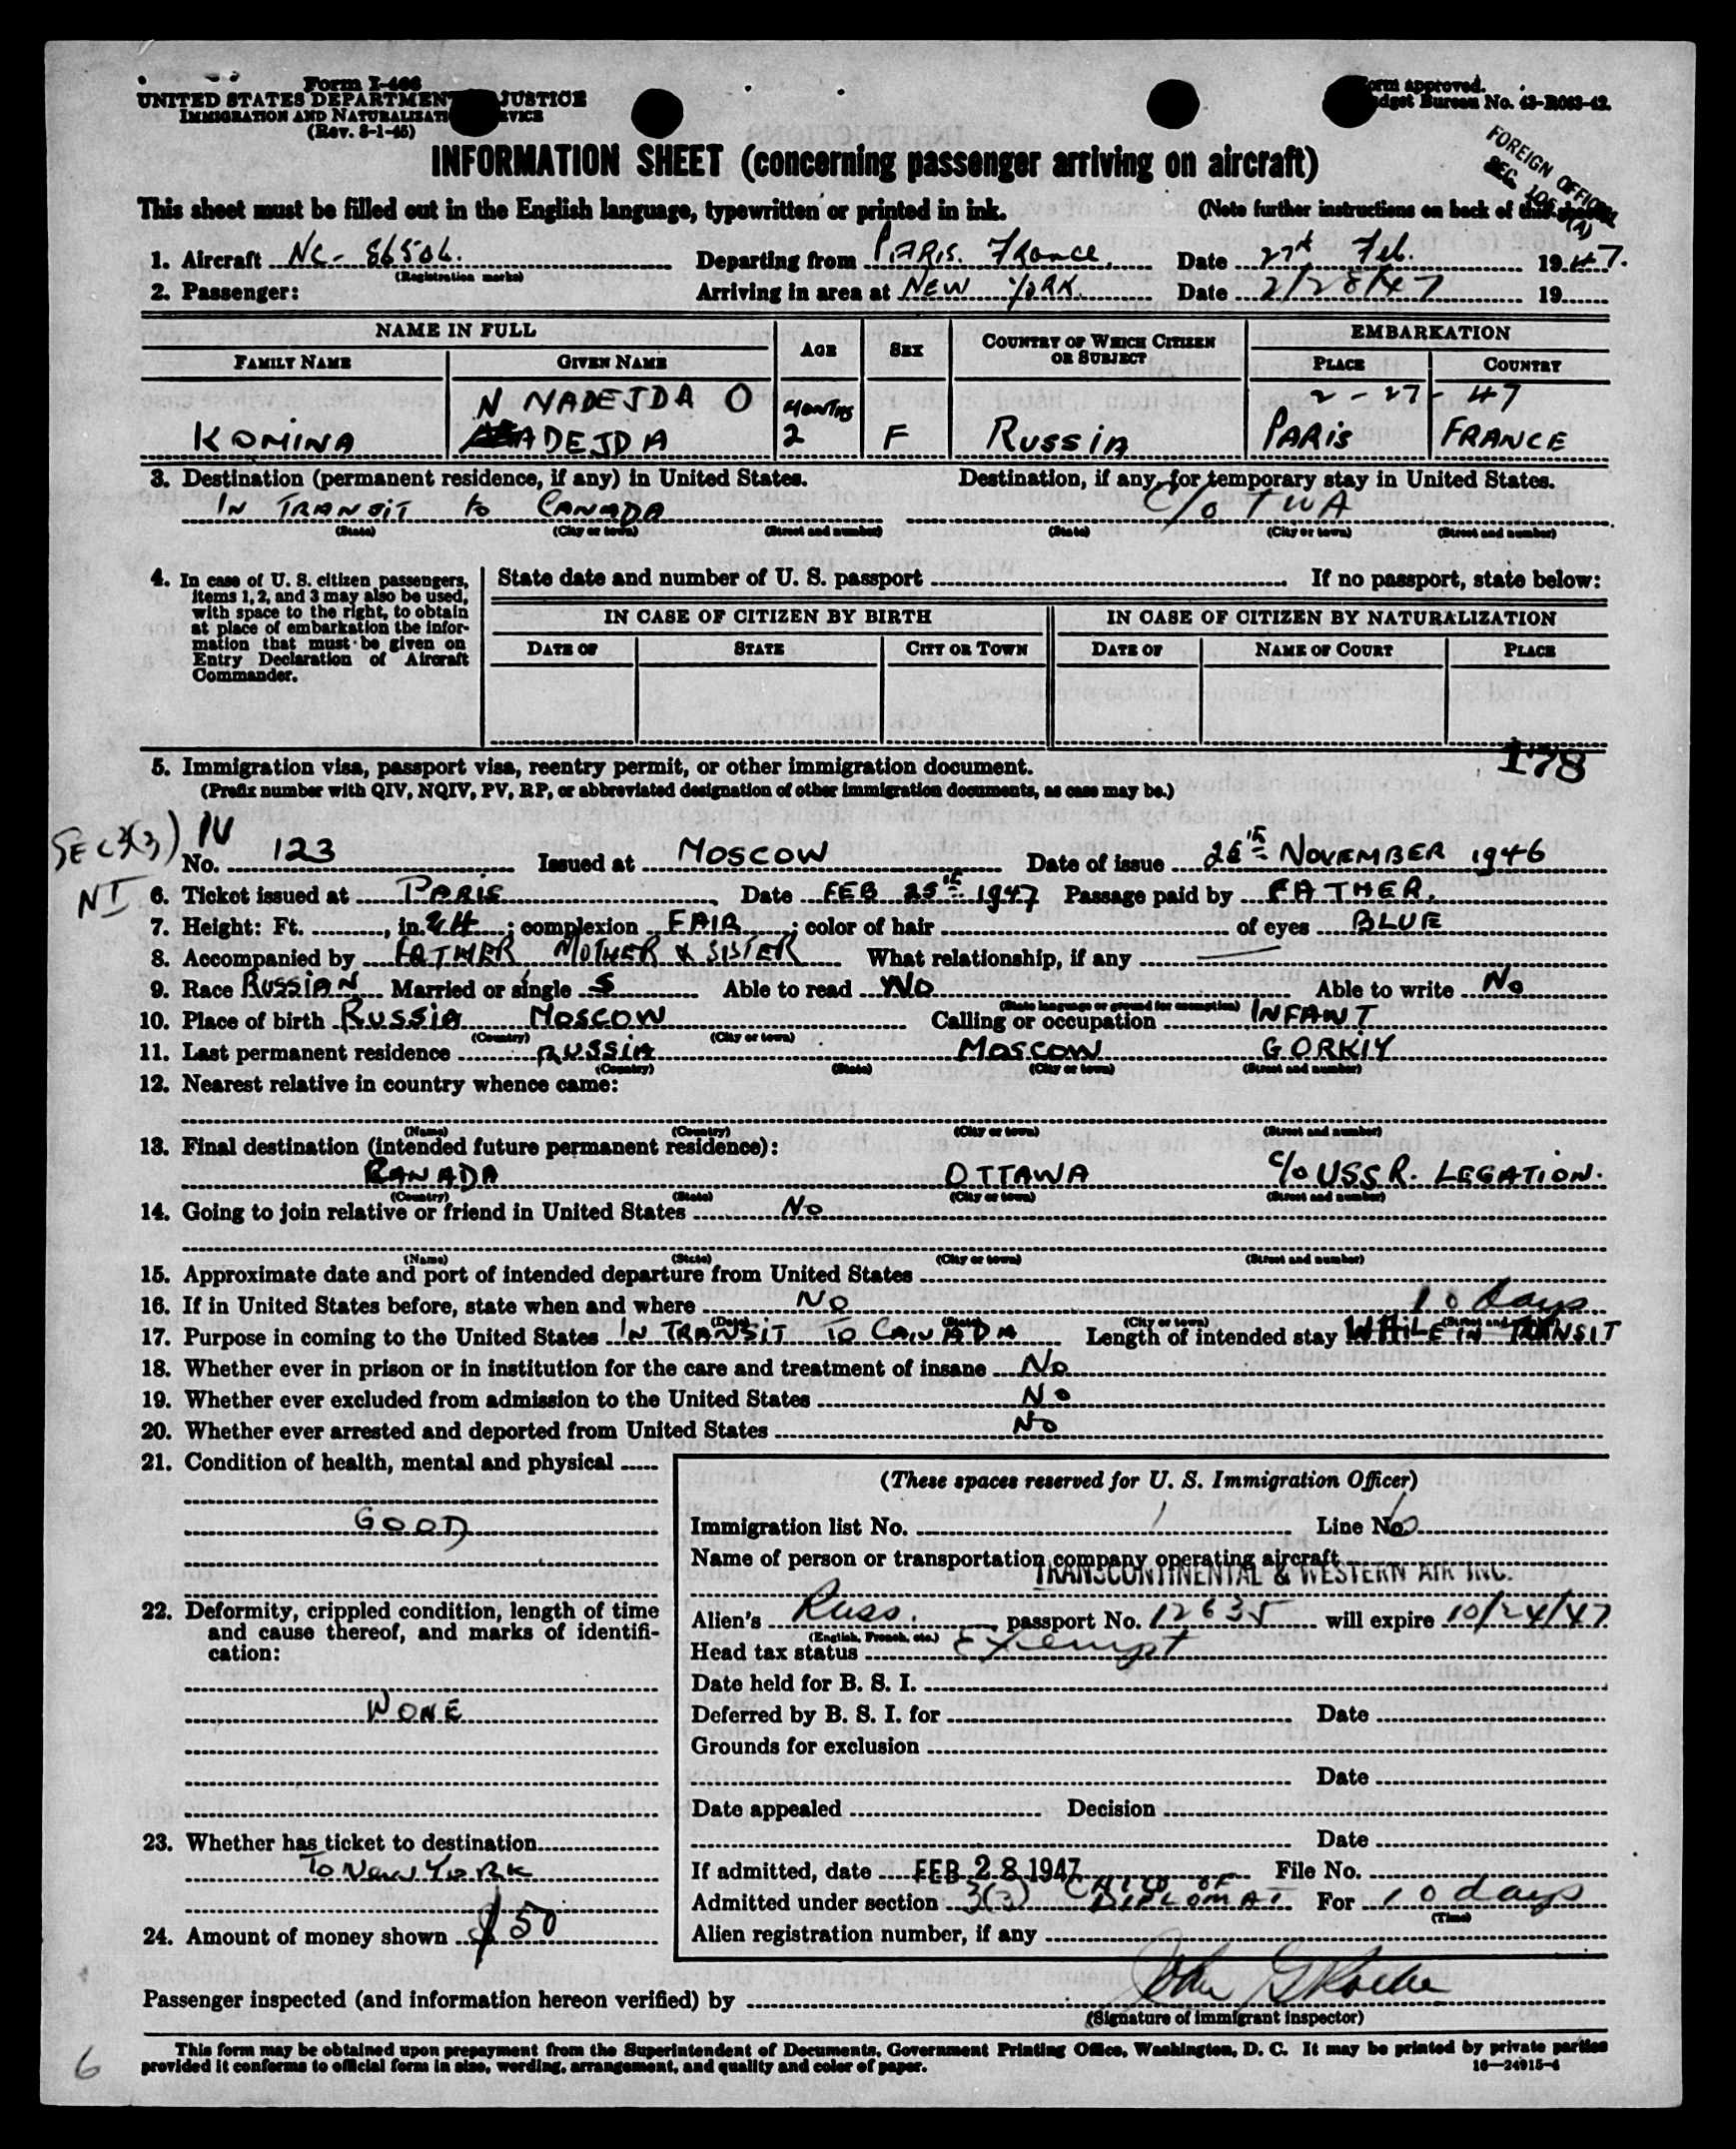 Form I-466
UNITED STATES DEPARTMENT JUSTICE
IMMIGRATION AND NATURALIZATI RVICE
(Rev. 8-1-45)
orm approved.
dget Bureau No. 43-R063-42.
FOREIGN OFFICIAL
SEC
INFORMATION SHEET (concerning passenger arriving on aircraft)
This sheet must be filled out in the English language, typewritten or printed in ink. (Note further instructions on back of this sheet)
1. Aircraft NC- 86506. Departing from PARIS. France. Date 27th Feb. 1947.
(Registration marks)
2. Passenger: Arriving in area at NEW YORK. Date 2/28/47 19
NAME IN FULL AGE SEX COUNTRY OF WHICH CITIZEN OR SUBJECT EMBARKATION
FAMILY NAME GIVEN NAME PLACE COUNTRY
N NADEJDA O MONTHS 2-27-47
KOMINA ADEJDA 2 F RUSSIA PARIS FRANCE
3. Destination (permanent residence, if any) in United States. Destination, if any, for temporary stay in United States.
IN TRANSIT to CANADA C/o TWA
(State) (City or town) (Street and number) (State) (City or town) (Street and number)
4. In case of U. S. citizen passengers, items 1, 2, and 3 may also be used, with space to the right, to obtain at place of embarkation the information that must be given on Entry Declaration of Aircraft Commander.
State date and number of U. S. passport If no passport, state below:
IN CASE OF CITIZEN BY BIRTH IN CASE OF CITIZEN BY NATURALIZATION
DATE OF STATE CITY OR TOWN DATE OF NAME OF COURT PLACE
178
5. Immigration visa, passport visa, reentry permit, or other immigration document.
(Prefix number with QIV, NQIV, PV, RP, or abbreviated designation of other immigration documents, as case may be.)
SEC 3(3) IV
No. 123 Issued at MOSCOW Date of issue 25th NOVEMBER 1946
NI
6. Ticket issued at PARIS Date FEB 25th 1947 Passage paid by FATHER.
7. Height: Ft. , in. 24 ; complexion FAIR ; color of hair of eyes BLUE
8. Accompanied by FATHER MOTHER & SISTER What relationship, if any
9. Race RUSSIAN Married or single S Able to read NO Able to write No
(State language or ground for exemption)
10. Place of birth RUSSIA MOSCOW Calling or occupation INFANT
(Country) (City or town)
11. Last permanent residence RUSSIA MOSCOW GORKIY
(Country) (State) (City or town) (Street and number)
12. Nearest relative in country whence came:
(Name) (Country) (City or town) (Street and number)
13. Final destination (intended future permanent residence):
CANADA OTTAWA C/o USSR. LEGATION.
(Country) (State) (City or town) (Street and number)
14. Going to join relative or friend in United States No
(Name) (State) (City or town) (Street and number)
15. Approximate date and port of intended departure from United States
16. If in United States before, state when and where No 10 days
(Date) (State) (City or town) (Street and number)
17. Purpose in coming to the United States IN TRANSIT TO CANADA Length of intended stay WHILE IN TRANSIT
18. Whether ever in prison or in institution for the care and treatment of insane No
19. Whether ever excluded from admission to the United States No
20. Whether ever arrested and deported from United States No
21. Condition of health, mental and physical
GOOD
22. Deformity, crippled condition, length of time and cause thereof, and marks of identification:
NONE
23. Whether has ticket to destination
To New YORK
24. Amount of money shown $50
(These spaces reserved for U. S. Immigration Officer)
Immigration list No. 1 Line No.
Name of person or transportation company operating aircraft
TRANSCONTINENTAL & WESTERN AIR INC.
Alien's Russ. passport No. 12635 will expire 10/24/47
(English, French, etc.)
Head tax status Exempt
Date held for B. S. I.
Deferred by B. S. I. for Date
Grounds for exclusion
Date
Date appealed Decision
Date
If admitted, date FEB 28 1947 File No.
Admitted under section 3(3) CHILD OF DIPLOMAT For 10 days
(Time)
Alien registration number, if any
Passenger inspected (and information hereon verified) by
(Signature of immigrant inspector)
This form may be obtained upon prepayment from the Superintendent of Documents, Government Printing Office, Washington, D. C. It may be printed by private parties
provided it conforms to official form in size, wording, arrangement, and quality and color of paper. 16—24915-4
6